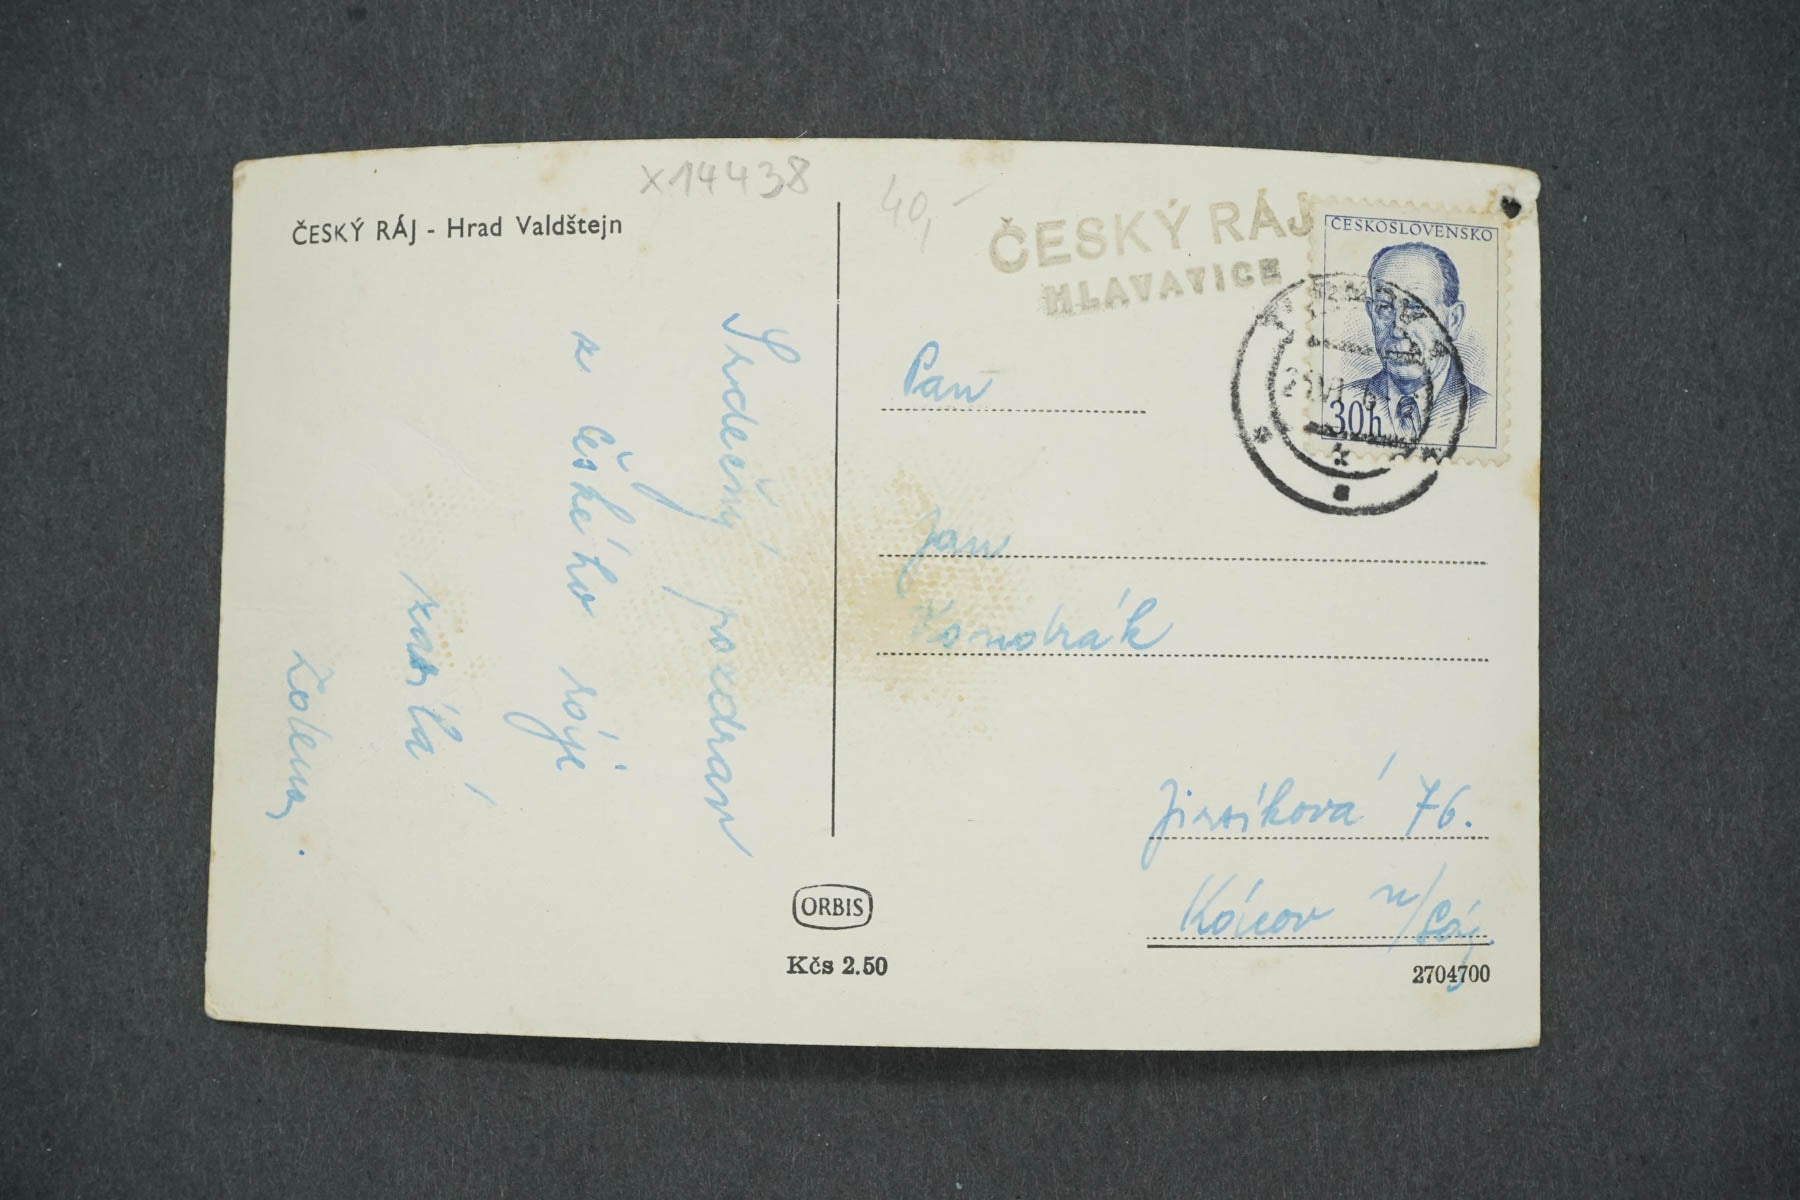 x14438
40,-
ČESKÝ RÁJ - Hrad Valdštejn
ČESKÝ RÁJ
HLAVATICE
ČESKOSLOVENSKO
30h
Srdečný pozdrav
z českého ráje
zasílá
Pan
Jan
Jirsíková 76.
n/Sáz.
ORBIS
Kčs 2.50
2704700